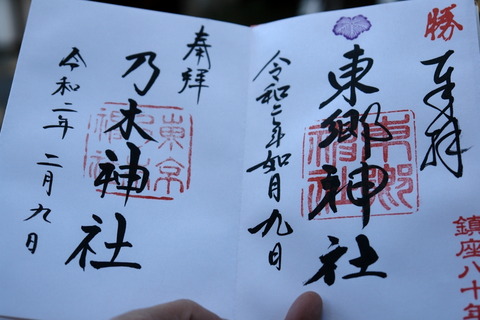 勝
奉拝
鎮座八十年
東郷神社
東郷
神社
令和二年如月九日
奉拝
乃木神社
東京
令和二年二月九日